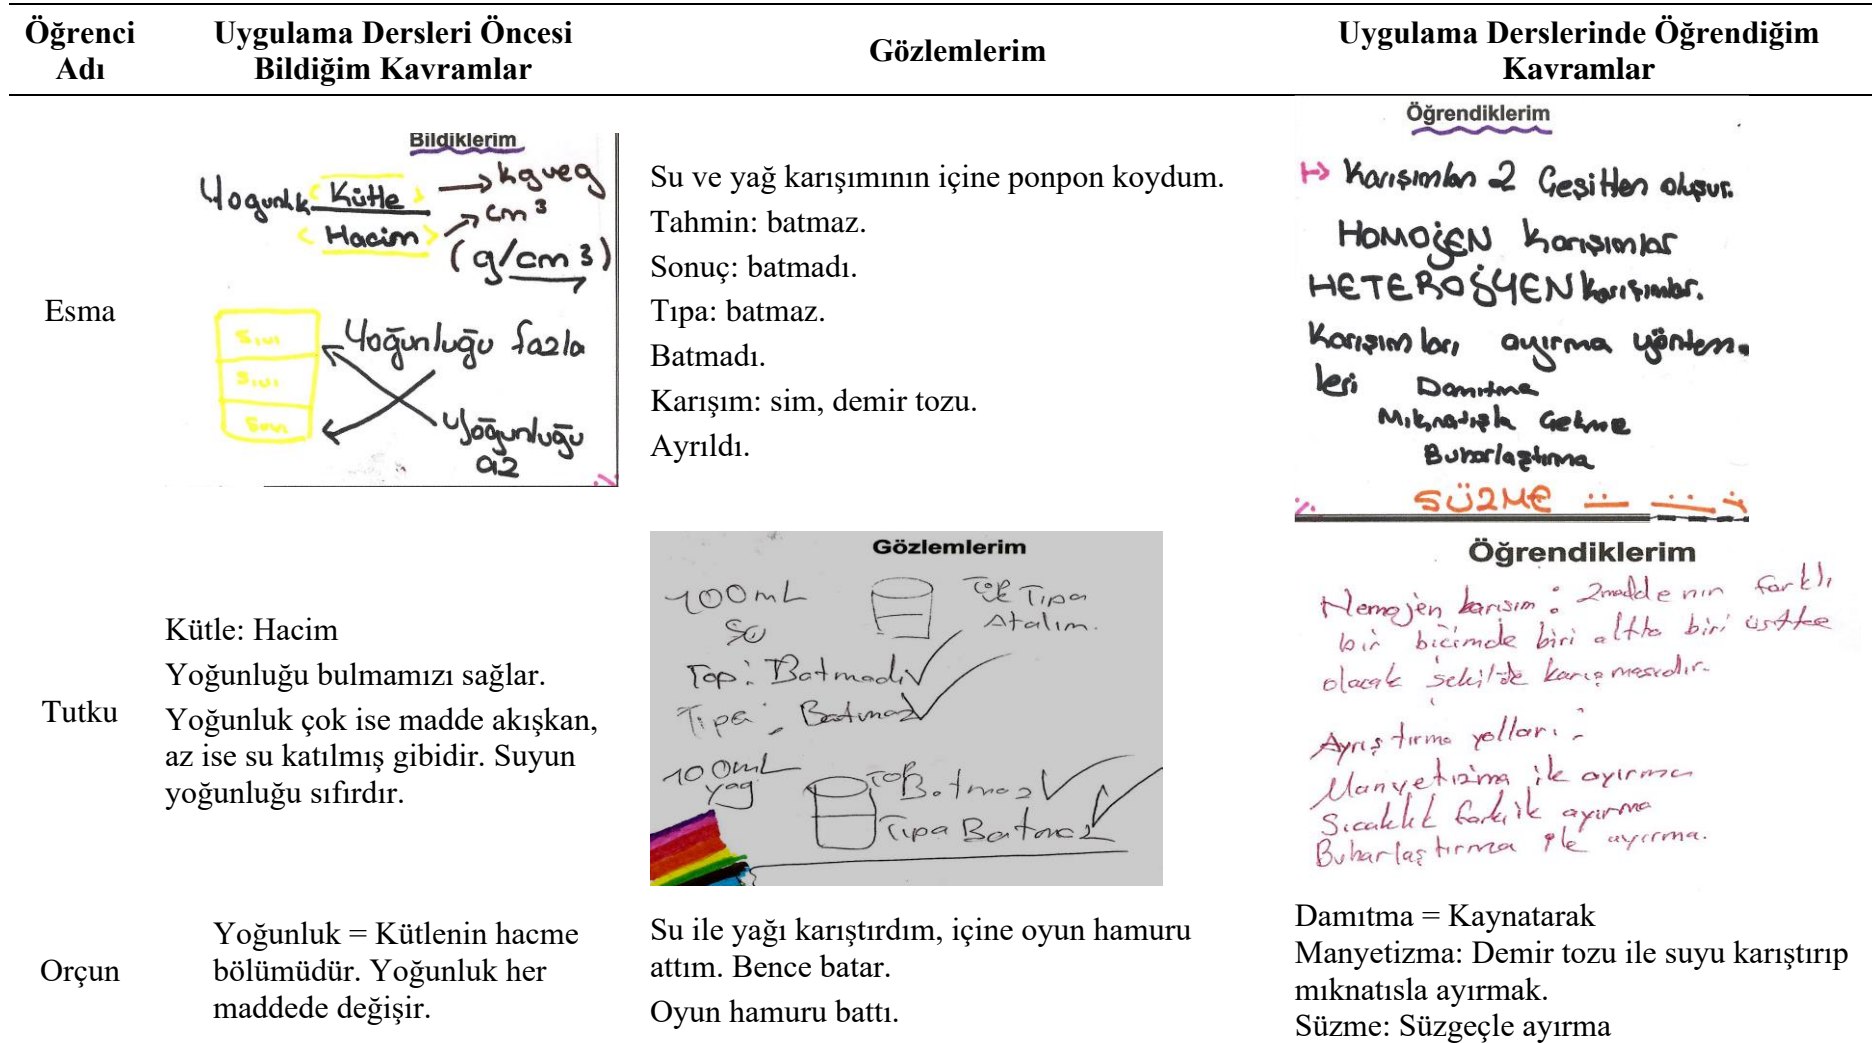 Öğrenci Adı
Uygulama Dersleri Öncesi Bildiğim Kavramlar
Gözlemlerim
Uygulama Derslerinde Öğrendiğim Kavramlar
Esma
Bildiklerim
Yogunluk Kütle → kg ve g
Hacim → cm³
(g/cm3)
sıvı
sıvı
sıvı
Yoğunluğu fazla
yoğunluğu
az
Su ve yağ karışımının içine ponpon koydum.
Tahmin: batmaz.
Sonuç: batmadı.
Tıpa: batmaz.
Batmadı.
Karışım: sim, demir tozu.
Ayrıldı.
Öğrendiklerim
Karışımları 2 Çeşitten oluşur.
HOMOJEN Karışımlar
HETEROĞYEN Karışımlar.
Karışımları ayırma yöntem-
leri Damıtma
Mıknatışla Çekme
Buharlaştırma
SÜZME
Tutku
Kütle: Hacim
Yoğunluğu bulmamızı sağlar.
Yoğunluk çok ise madde akışkan,
az ise su katılmış gibidir. Suyun
yoğunluğu sıfırdır.
Gözlemlerim
100mL
su
Top
ve Tıpa
Atalım.
Top: Batmadı
Tıpa: Batmaz
100mL
yag
Top Batmaz
Tıpa Batmaz
Öğrendiklerim
Hemojen karışım: 2 maddenin farklı
bir biçimde biri altta biri üstte
olacak şekilde karışmasıdır.
Ayrıştırma yolları:
Manyetizma ile ayırma
Sıcaklık farkı ile ayırma
Buharlaştırma ile ayırma.
Orçun
Yoğunluk = Kütlenin hacme
bölümüdür. Yoğunluk her
maddede değişir.
Su ile yağı karıştırdım, içine oyun hamuru
attım. Bence batar.
Oyun hamuru battı.
Damıtma = Kaynatarak
Manyetizma: Demir tozu ile suyu karıştırıp
mıknatısla ayırmak.
Süzme: Süzgeçle ayırma